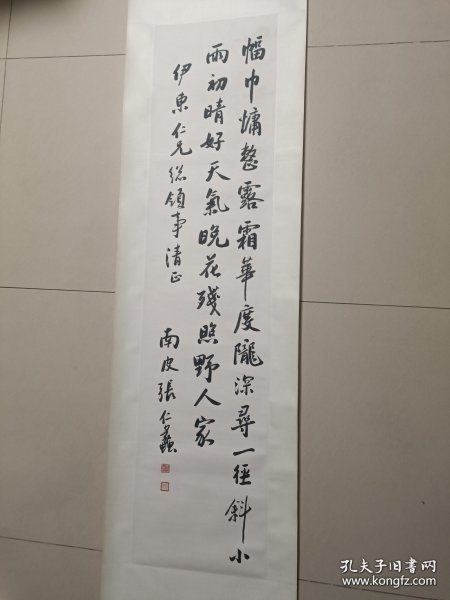 幅巾慵整露霜華度隴深尋一徑斜小
雨初晴好天氣晚花殘照野人家
伊東仁兄總領事清正
南皮張仁蠡
孔夫子旧书网
www.kongfz.com